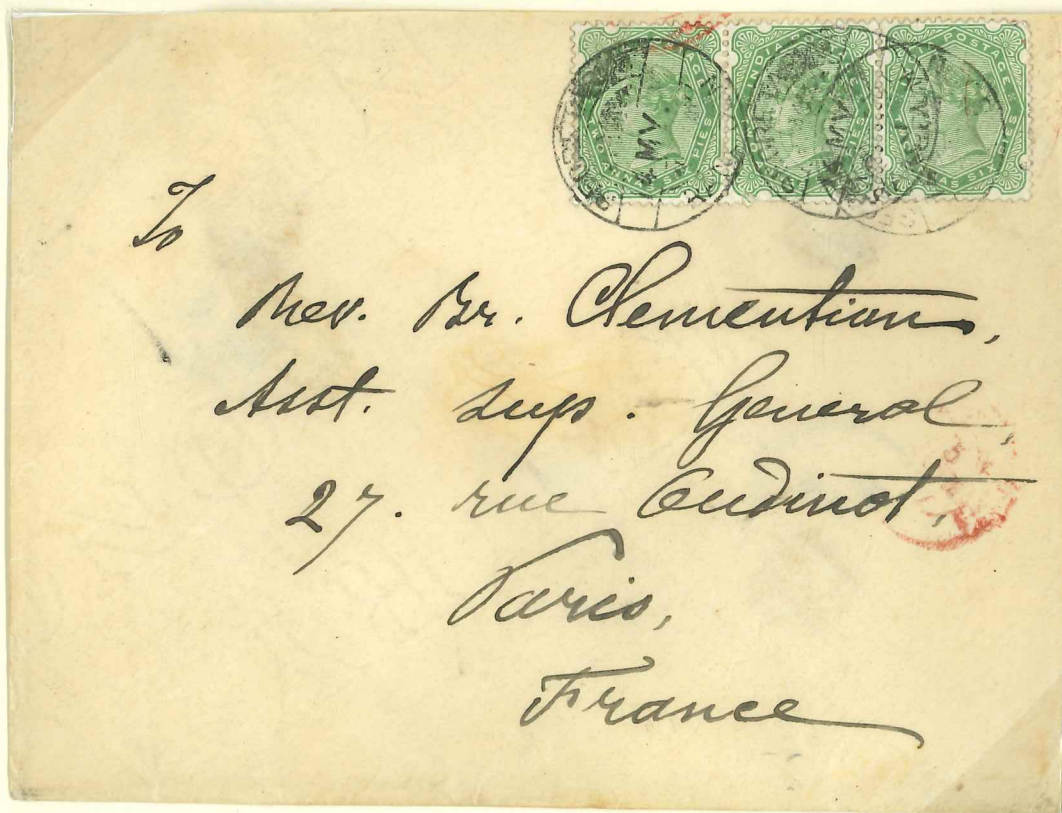 INDIA POSTAGE
TWO ANNAS SIX PIES
To
Rev. Br. Clementian,
Asst. Sup. General,
27. rue Oudinot,
Paris,
France